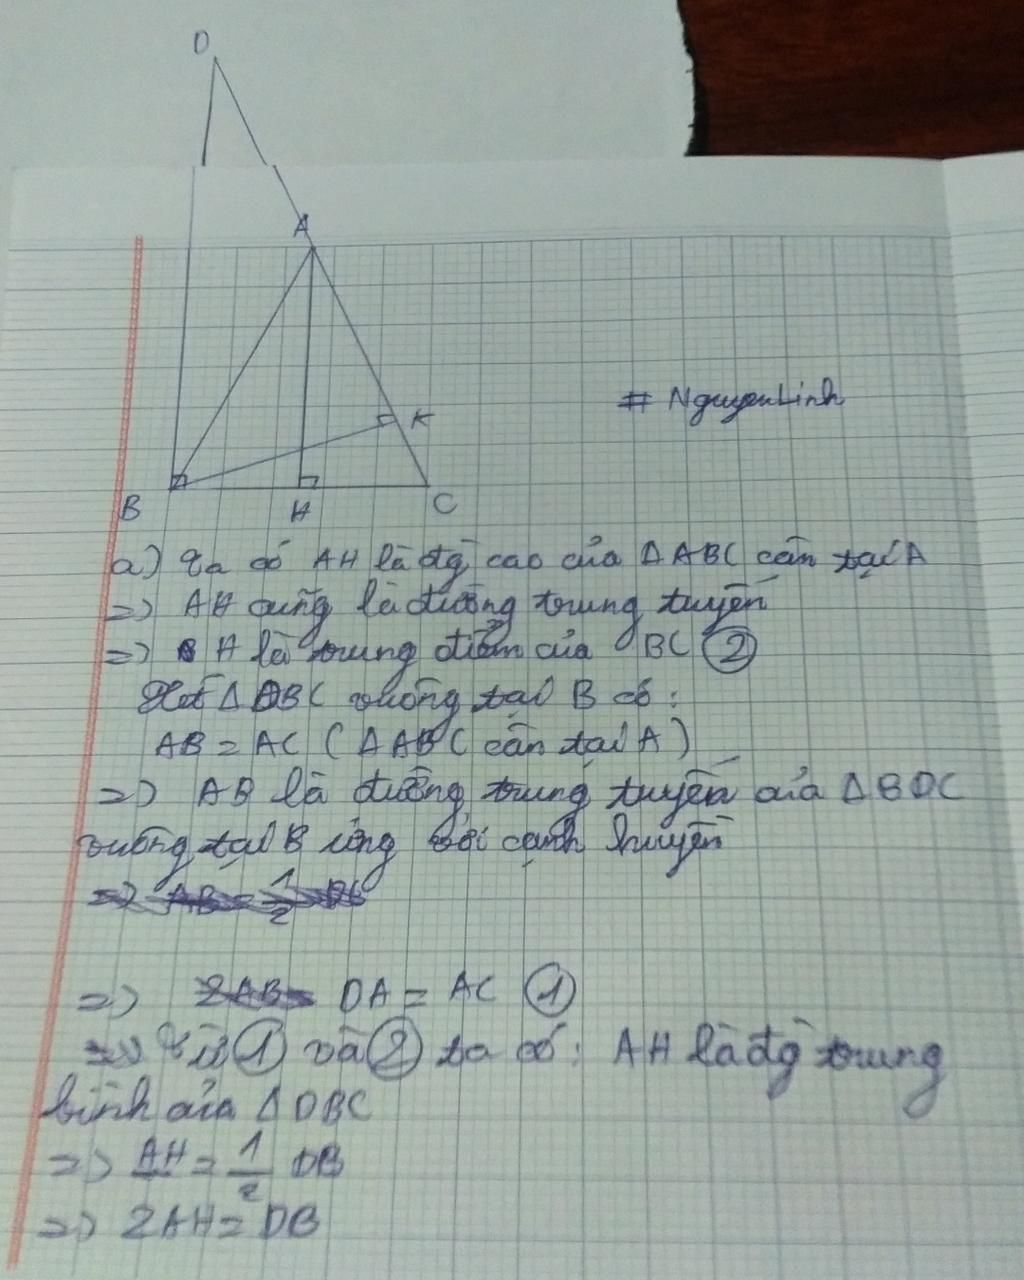 D
A
# NguyenLinh
K
B
H
C
a) Ta có AH là đg cao của ΔABC cân tại A
=> AH cũng là đường trung tuyến
=> H là trung điểm của BC (2)
Xét ΔDBC vuông tại B có:
AB = AC (ΔABC cân tại A)
=> AB là đường trung tuyến của ΔBDC
vuông tại B ứng với cạnh huyền
=> DA = AC (1)
=> Từ (1) và (2) ta có: AH là đg trung
bình của ΔDBC
=> AH = 1/2 DB
=> 2AH = DB